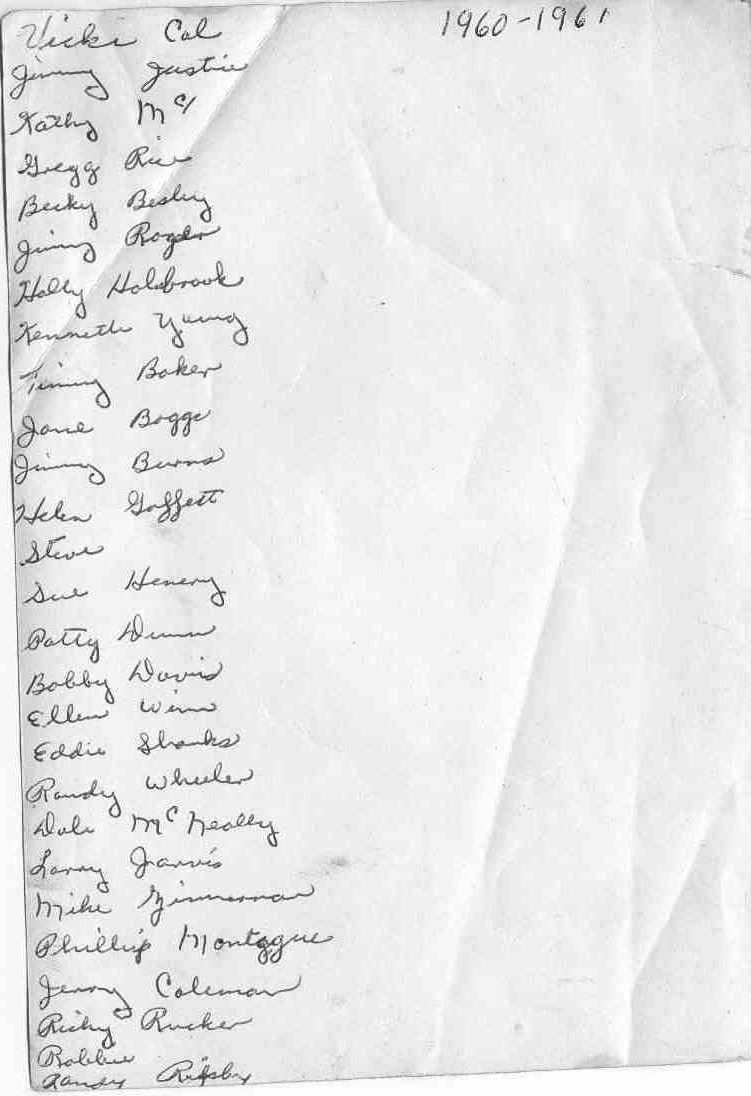 1960-1961
Vicki Cal
Jimmy Justice
Kathy Mc
Gregg Rice
Becky Besley
Jimmy Roger
Holly Holsbrook
Kenneth Young
Timmy Baker
Jane Boggs
Jimmy Burns
Helen Goffett
Steve
Sue Henery
Patty Dunn
Bobby Davis
Ellen Winn
Eddie Shanks
Randy Wheeler
Dale McNeally
Larry Jarvis
Mike Zimmerman
Phillip Montague
Jerry Coleman
Ricky Rucker
Robbie
Randy